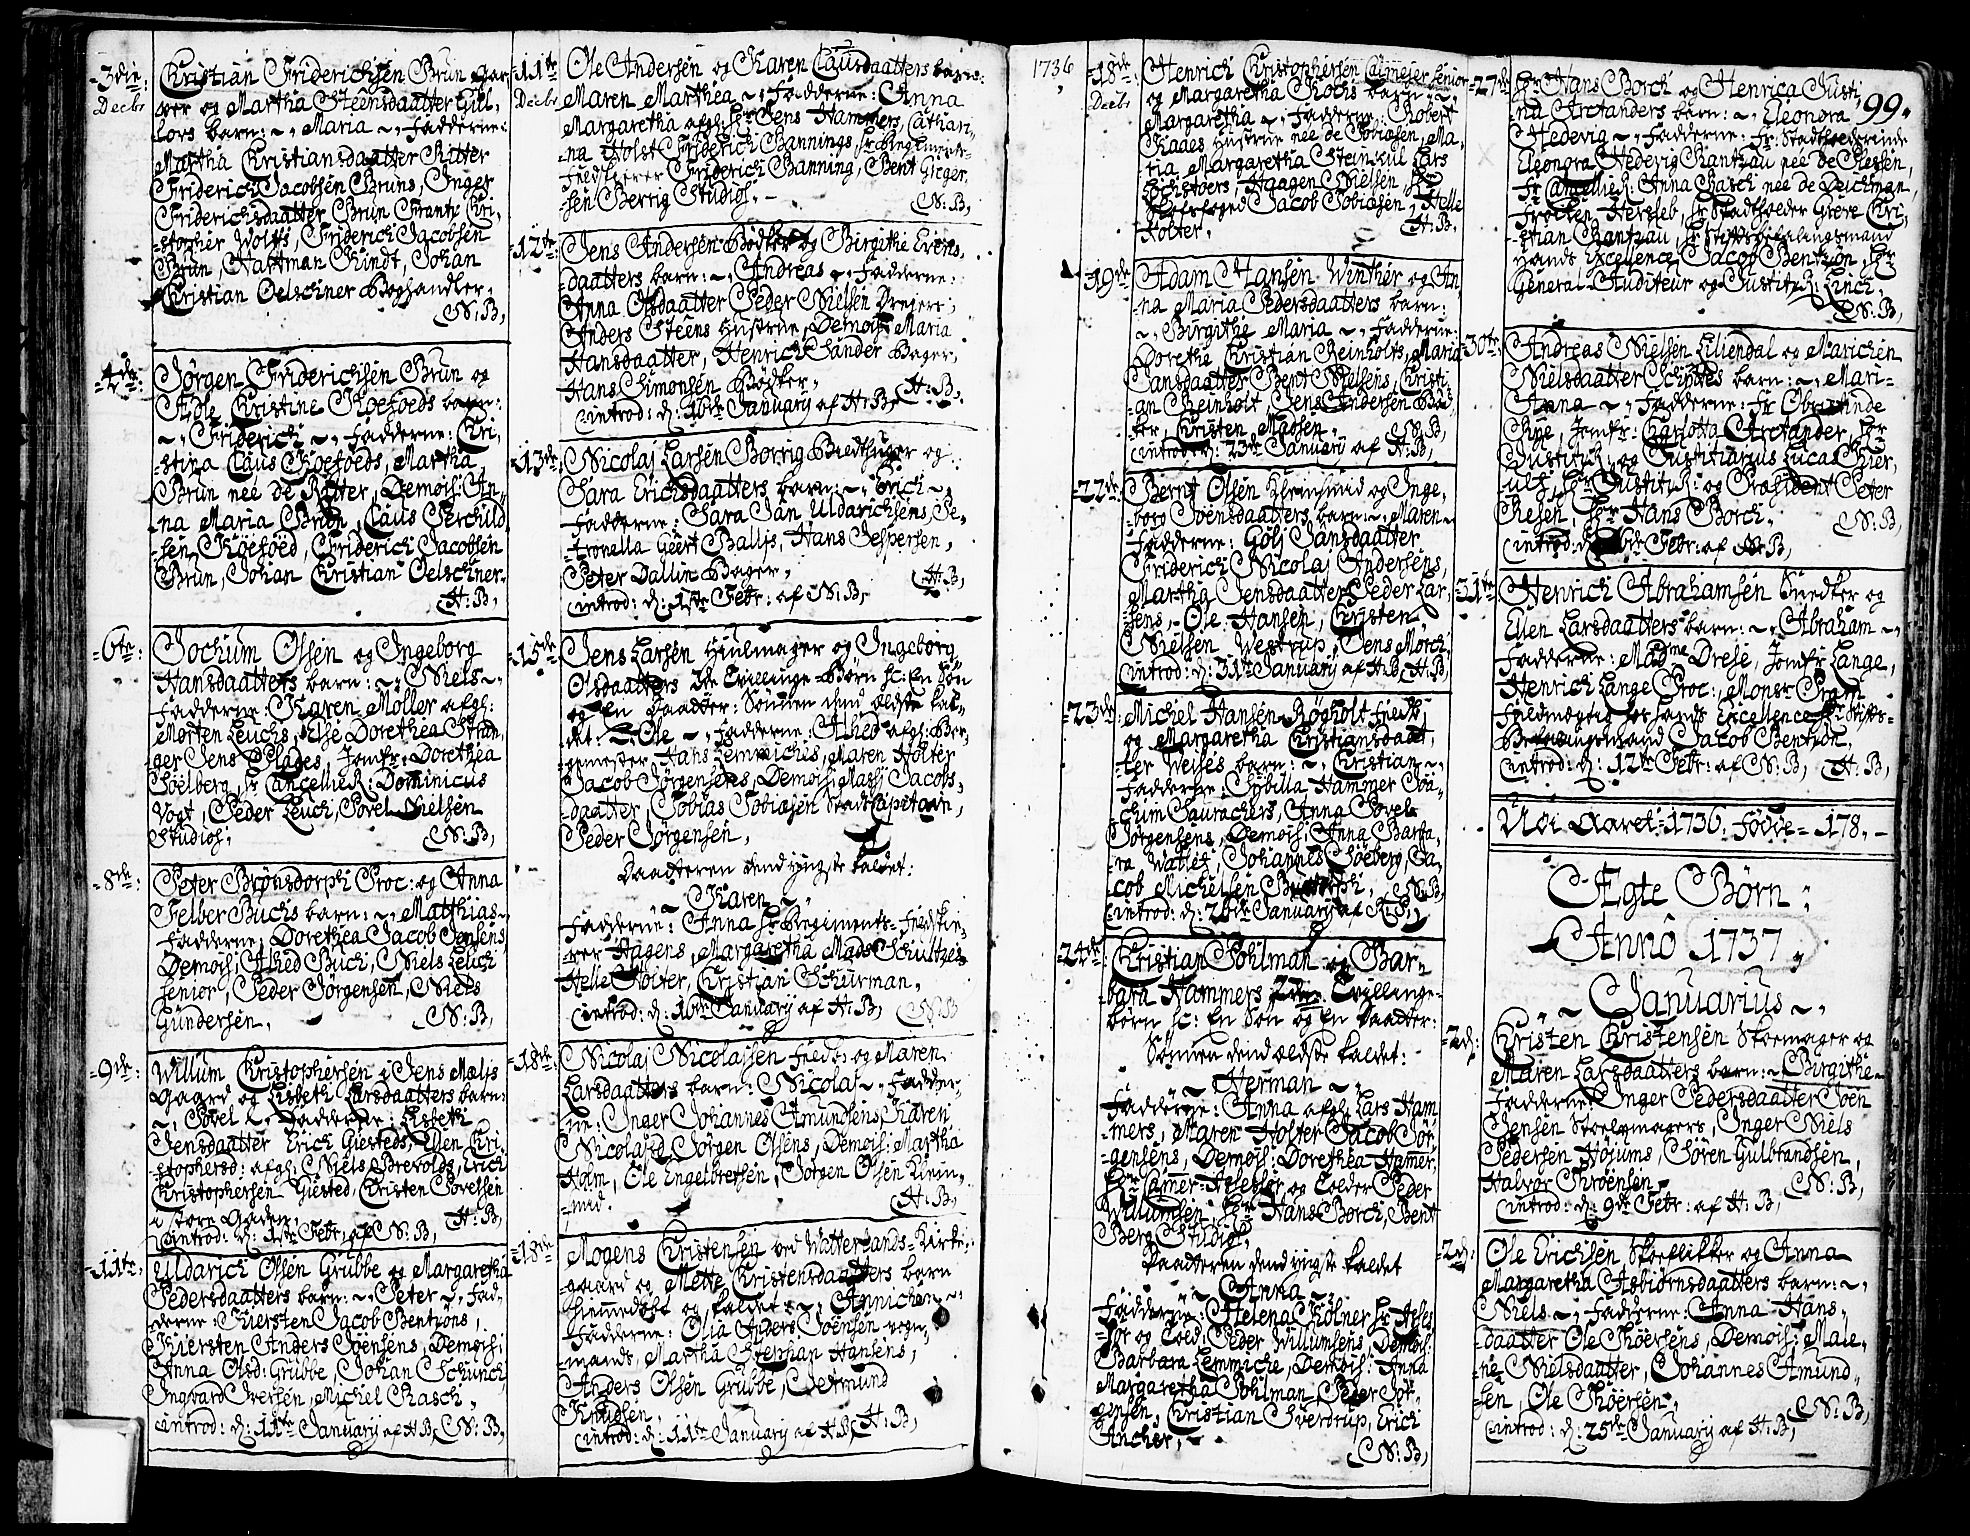 3die Decbr
Christian Friderichsen Brun Gar-
ver og Martha Steensdaatter Gul-
lovs barn: ~, Maria ~, Fadderne:
Martha Christiansdaatter Ritter
Friderich Jacobsen Bruns, Inger
Friderichsdaatter Brun Frantz Chri-
stopher Wolffs, Friderich Jacobsen
Brun, Hartman Kindt, Johan
Christian Oelschner Boghandler.
N: B,
4de
Jørgen Friderichsen Brun og
Adle Christine Koefoeds barn:
~, Friderich ~, Fadderne: Chri-
stina Claus Koefoeds, Martha
Brun nee de Ritter, Demois: An-
na Maria Brun, Claus Perchild-
sen Koefoed, Friderich Jacobsen
Brun, Johan Christian Oelschner.
H: B,
6te
Jochum Olsen og Ingeborg
Hansdaatters barn: ~, Niels ~,
Fadderne: Karen Moller afgl:
Morten Leuchs, Else Dorethea Stran-
ger Jens Plades, Jomfr: Dorethea
Soelberg, Hr Cancellie R: Dominicus
Vogt, Peder Leuch, Povel Nielsen
Studios:
N: B,
8de
Peter Brønsdorph Proc: og Anna
Felber Buchs barn: ~, Matthias ~,
Fadderne: Dorethea Jacob Jensens,
Demois: Alhed Buch, Niels Leuch
senior, Peder Jørgensen, Niels
Gundersen.
N: B,
9de
Willum Christophersen i Jens Maljs
Gaard og Lisbeth Larsdaatters barn:
~, Povel ~, Fadderne: Lisbeth
Jensdaatter Erich Giesteds, Ellen Chri-
stophersd: afgl: Niels Brevolds, Erich
Christophersen Giested, Christen Povelsen
i store Gaden.
H: B,
introd: d: 1ste Febr: af N: B,
11te
Uldarich Olsen Grubbe og Margaretha
Pedersdaatters barn: ~, Peter ~, Fad-
derne: Kiersten Jacob Bentzons,
Kiersten Anders Joensens, Demois:
Anna Olsd: Grubbe, Johan Schunch,
Ingvard Iversen, Michel Rasch,
introd: d: 11te January af H: B, N: B,
11te Decbr
Ole Andersen og Karen Clausdaatters barn:
Maren Marthea ~, Fadderne: Anna
Margaretha afgl: Hr Jens Hammers, Cathari-
na Holst Friderich Bannings, Hr Regiments-
Feldskerer Friderich Banning, Bent Greger-
sen Berrig Studios:
N: B,
12te
Jens Andersen Bødker og Birgithe Evens-
daatters barn: ~, Andreas ~, Fadderne:
Anna Olsdaatter Peder Nielsen Drejers,
Anders Steens Hustrue, Demois: Maria
Hansdaatter, Henrich Sander Bager,
Hans Simonsen Bødker,
H: B,
introd: d: 16de January af H: B,
13de
Nicolaj Larsen Borrig og
Sara Erichsdaatters barn: ~, Erich ~,
Fadderne: Sara Jan Uldarichsens, Pe-
tronella Geert Ballis, Hans Jespersen,
Peter Dallin Bager,
H: B,
introd: d: 1ste Febr: af N: B,
15de
Jens Larsen Hiulmager og Ingeborg
Olsdaatters 2de Tvillinge-Børn sc: En Søn
og En Daatter: Sønnen dend ældste kal-
det: ~, Ole ~, Fadderne: Alhed afgl: Ber-
gemester Hans Lemmichus, Maren Holter
Jacob Jørgensens, Demois: Massj Jacobs-
daatter, Tobias Tobiasen StadsCapitain,
Peder Jørgensen,
Daatteren dend yngste kaldet:
~, Karen ~,
Fadderne: Anna Hr Regiments-Feldske-
rer Hagens, Margaretha Mads Schultzes
Helle Holter, Christian Schurman.
introd: d: 16de January af H: B, N: B
18de
Nicolaj Nicolajsen Fredb: og Maren
Larsdaatters barn: Nicolaj ~, Fadder-
ne: Inger Johannes Amundsens, Karen
Nicolajsd Jørgen Olsens, Demois: Martha
Holm, Ole Engelbretsen, Jørgen Olsen
H: B,
18de
Mogens Christensen ved Watterlands-Kirke-
gaard og Mette Christensdaatters barn
hiemmedøbt og kaldet: ~, Annichen ~,
Fadderne: Olia Anders Joensen vogn-
mands, Martha Stephan Hansens,
Anders Olsen Grubbe, Giermund
Knudsen,
introd: d: 11te January af H: B, H: B,
1736
18de Decbr
Henrich Christophersen Calmejer senior
og Margaretha Kochs barn: ~,
Margaretha ~, Fadderne: Robert
Raaes Hustrue nee de Tobiasen, Ma-
ria Margaretha Steinkul Lars
Bochstoers, Haagen Nielsen, Hr
Jacob Tobiasen, Helle
Holter.
H: B,
19de
Adam Hansen Winther og An-
na Maria Pedersdaatters barn:
~, Birgithe Maria ~, Fadderne:
Dorethe Christian Reinholts, Maria
Jansdaatter Bent Nielsens, Christi-
an Reinholt Jens Andersen Bød-
ker, Christen Madsen,
N: B,
introd: d: 23de January af H: B,
22de
Bernt Olsen Kleinsmid og Inge-
borg Joensdaatters barn: ~, Maren ~
Fadderne: Golj Jansdaatter
Friderich Nicolaj Andersens,
Martha Jensdaatter Peder Lar-
sens, Ole Hansen, Christen
Nielsen Westrup, Jens Morch:
introd: d: 31te January af H: B, H: B,
23de
Michel Hansen Røgholt Fredb:
og Margaretha Christiansdaat-
ter Weises barn: ~, Christian ~
Fadderne: Sybilla Hammer Joa-
chum Saurachers, Anna Povel
Jørgensens, Demois: Anna Barba-
ra Walles, Johannes Søeberg, Ja-
cob Michelsen
N: B,
introd: d: 26de January af H: B,
24de
Christian Pohlman og Bar-
bara Hammers 2de Tvillinge-
børn sc: En Søn og En Daatter:
Sønnen dend ældste kaldet:
~, Herman ~,
Fadderne: Anna afgl: Lars Ham-
mers, Maren Holter Jacob Jør-
gensens, Demois: Dorethea Hamer,
Hr Camer-Assessor og Foged Peder
Willumsen, Hr Hans Borch, Bent
Berg Studios:
Daatteren dend yngste kaldet
~, Anna ~,
Fadderne: Helena Kølner Hr Asses-
sor og Foed: Peder Willumsens, Demois:
Barbara Lemmiche, Demois: Anna
Margaretha Pohlman, Peder Jør-
gensen, Christian Sverdrup, Erich
Ancher,
N: B,
27de
99.
Hr Hans Borch og Henrica Justi-
na Arctanders barn: ~, Eleonora
Hedevig ~, Fadderne: Fr: Stadtholderinde
Eleonora Hedevig Rantzau nee de Plessen,
Fr: Cancellie R: Anna Rasch nee de Deichman,
Frøiken Hersleb, Hr Stadtholder Greve Chri-
stian Rantzau, Hr Stiftsbefalingsmand
Hands Excellence Jacob Bentzon, Hr
General-Auditeur og Justitz R: Linch,
N: B,
30te
Andreas Nielsen Liliendal og Marichen
Nielsdaatter Schyttes barn: ~, Mari-
Anna ~, Fadderne: Fr Oberstinde
Rye, Jomfr: Charlotta Arctander, Hr
Justitz R: og Justitiarius Lucas Kier-
ulf, Hr Justitz R: og Præsident Peter
Resen, Hr Hans Borch.
N: B,
introd: d: Febr: af H: B,
31te
Henrich Abrahamsen Snedker og
Ellen Larsdaatters barn: ~, Abraham ~,
Fadderne: Madme Drese, Jomfr Lange,
Henrich Lange Proc:, Monsr Pram
Fuldmægtig for hands Excellence Hr Stifts-
Befalingsmand Jacob Bentzon,
introd: d: 12te Febr: af N: B, H: B,
Udi Aaret 1736. Fødde 178.
Ægte Børn
Anno 1737,
Januarius ~,
2d:
Christen Christensen Skoemager og
Maren Larsdaatters barn: ~, Birgithe ~
Fadderne: Inger Pedersdaatter Joen
Jensen Skoemagers, Inger Niels
Pedersen Højums, Søren Gulbrandsen,
Halvor Thrøensen,
N: B,
introd: d: 9de Febr: af H: B,
2d:
Ole Erichsen Skoeflikker og Anna
Margaretha Asbiørnsdaatters barn: ~,
Niels ~, Fadderne: Anna Hans-
daatter Ole Thoersens, Demois: Male-
ne Nielsdaatter, Johannes Amund-
sen, Ole Thoersen,
N: B,
introd: d: 25de January af H: B,